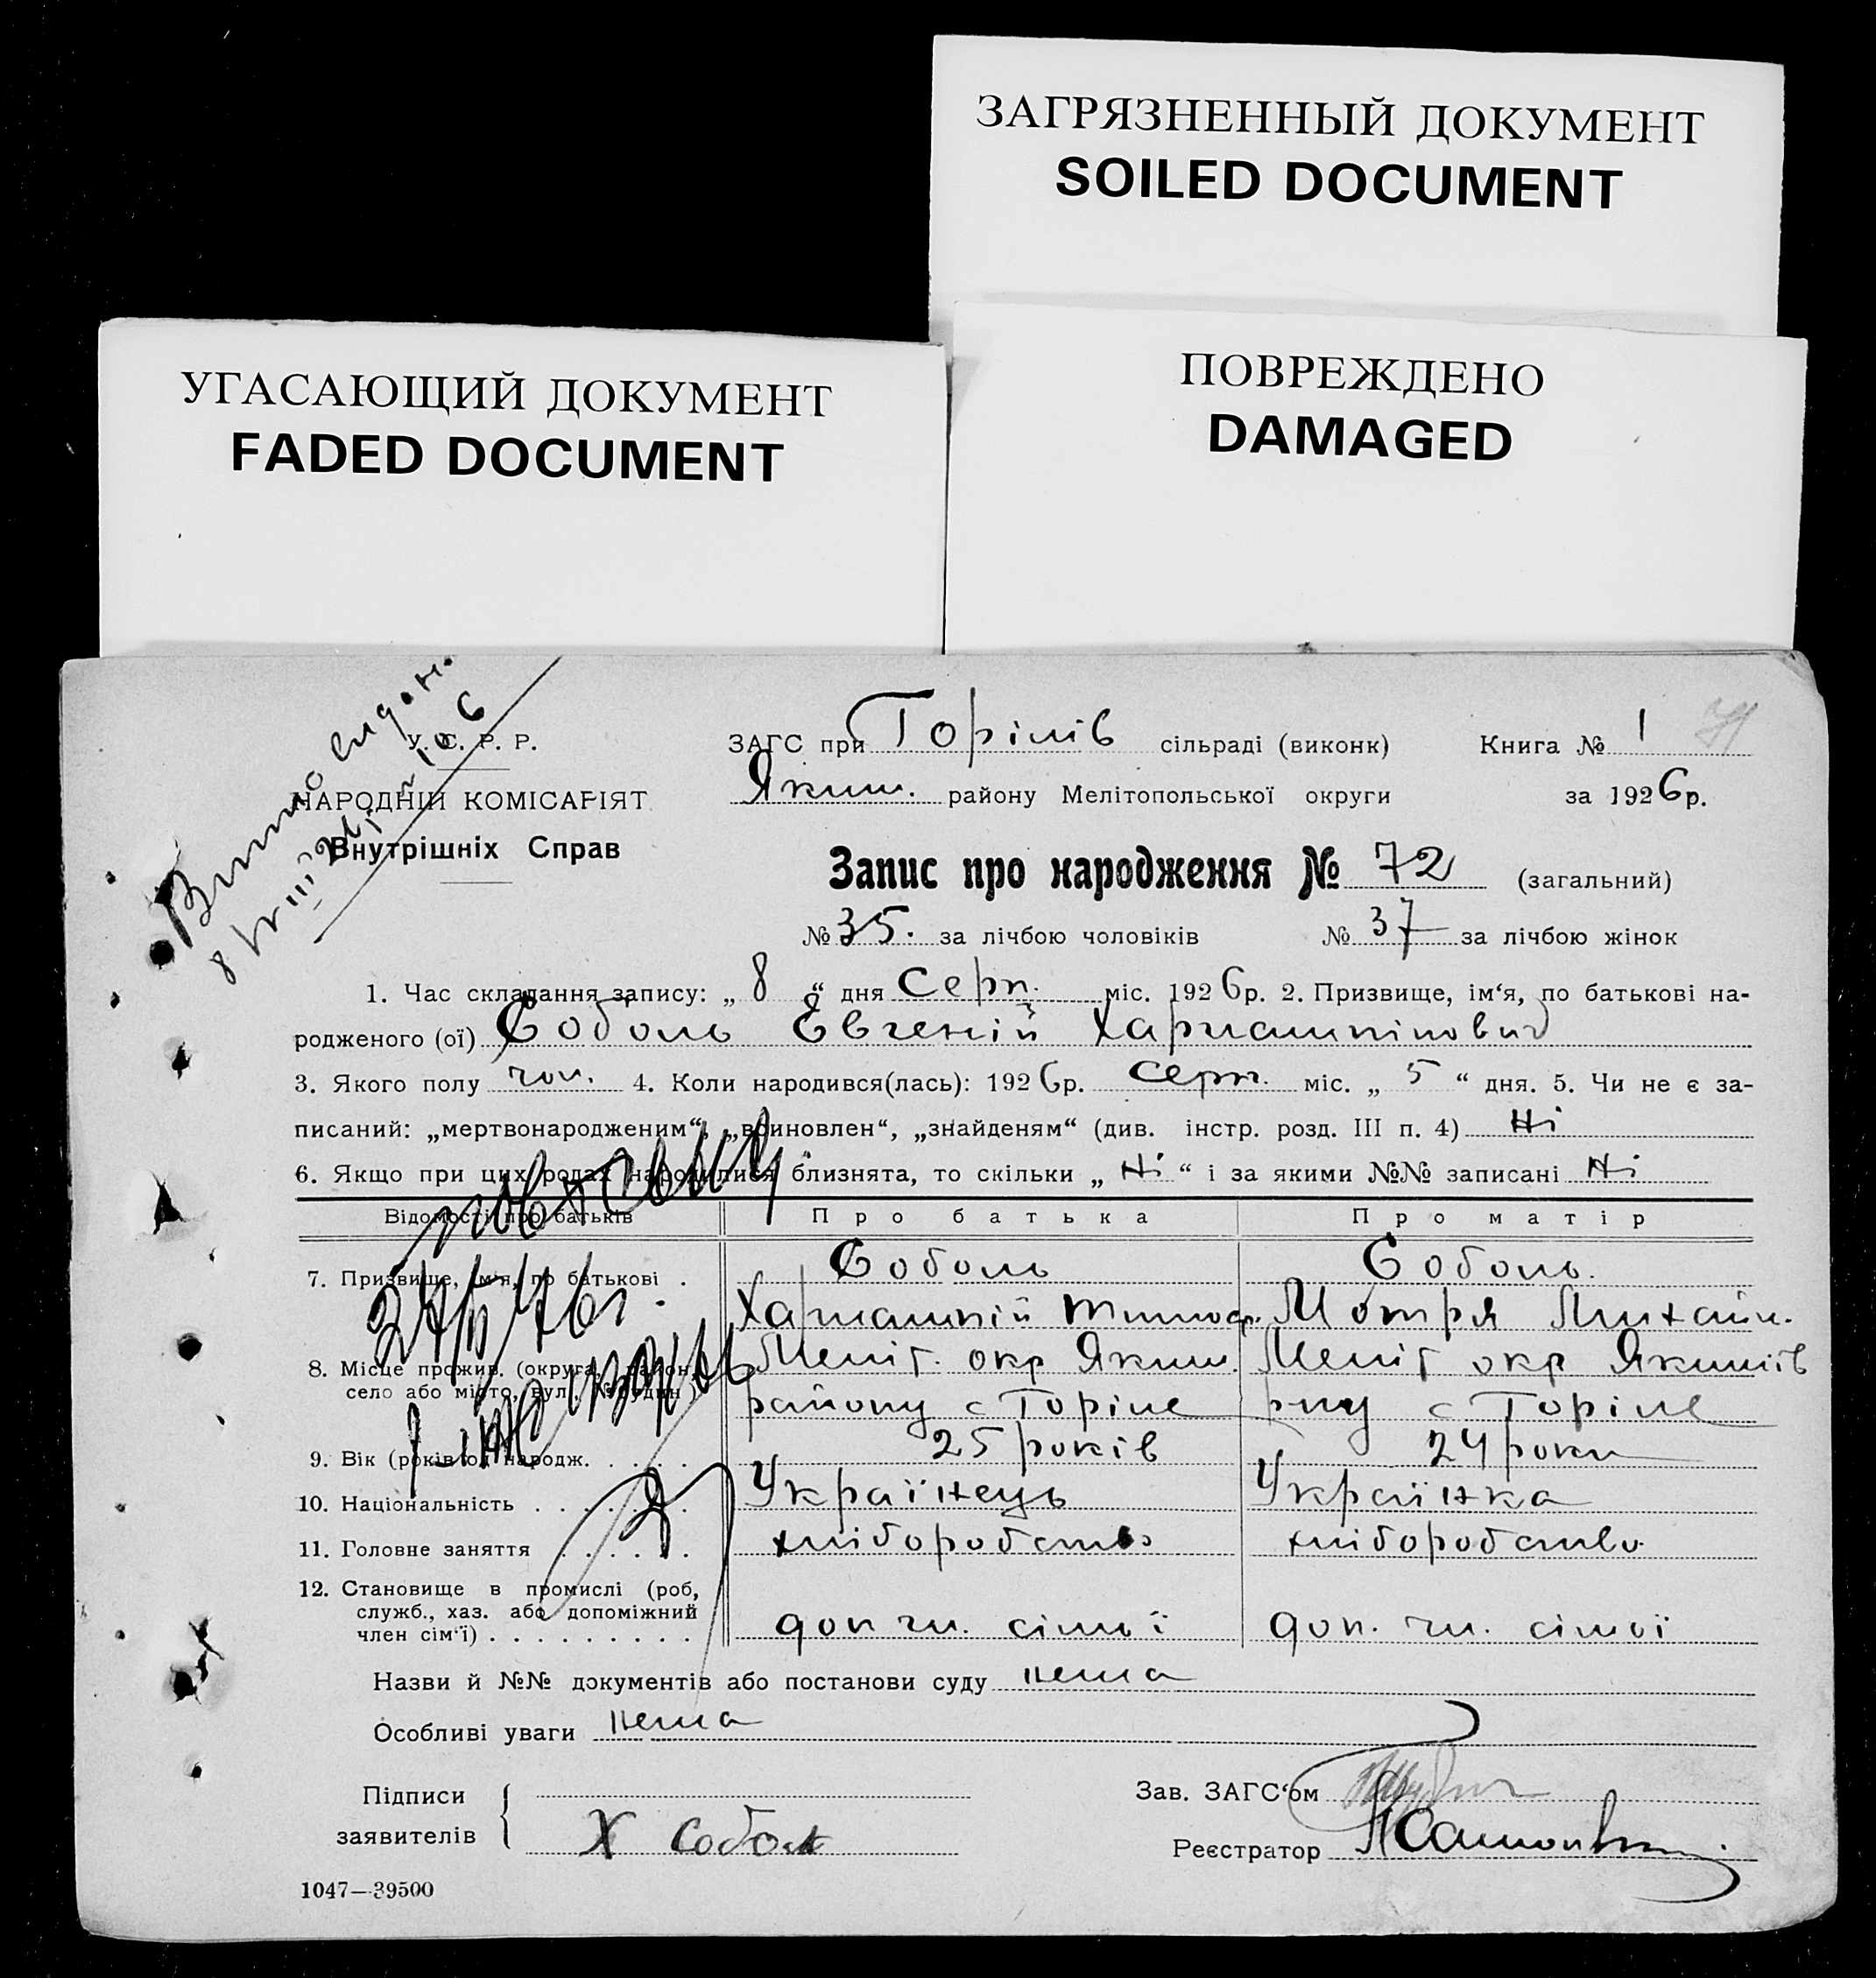 ЗАГРЯЗНЕННЫЙ ДОКУМЕНТ
SOILED DOCUMENT
УГАСАЮЩИЙ ДОКУМЕНТ
FADED DOCUMENT
ПОВРЕЖДЕНО
DAMAGED
У. С. Р. Р.
НАРОДНІЙ КОМІСАРІЯТ
Внутрішніх Справ
ЗАГС при Горілів сільраді (виконк) Книга № 1 71
Яким. району Мелітопольської округи за 1926р.
Запис про народження № 72 (загальний)
№ 35. за лічбою чоловіків № 37 за лічбою жінок
1. Час складання запису: „ 8 “ дня Серп. міс. 1926р. 2. Призвище, ім‘я, по батькові на-
родженого (ої) Соболь Євгеній Харлампілович
3. Якого полу чол. 4. Коли народився(лась): 1926р. Серп. міс. „ 5 “ дня. 5. Чи не є за-
писаний: „мертвонародженим“, „всиновлен“, „знайденям“ (див. інстр. розд. III п. 4) Ні
6. Якщо при цих родах народилися близнята, то скільки „ Ні “ і за якими №№ записані Ні
Відомості про батьків Про батька Про матір
7. Призвище, ім‘я, по батькові . Соболь Соболь.
Харлампій Тимоф. Мотря Михайл.
8. Місце прожив. (округа, район, Меліт. окр Яким. Меліт окр Якимів
село або місто, вул., № будин.) району с Горіле р-ну с Горіле
9. Вік (років) од народж. . . . . 25 років 24 роки
10. Національність . . . . . . . Українець Українка
11. Головне заняття . . . . . . хліборобство хліборобство
12. Становище в промислі (роб,
служб., хаз. або допоміжний
член сім‘ї) . . . . . . . . . доп чл. сімої доп. чл. сімої
Назви й №№ документів або постанови суду нема
Особливі уваги нема
Підписи
заявителів Х Собол
Зав. ЗАГС‘ом
Реєстратор
1047—39500